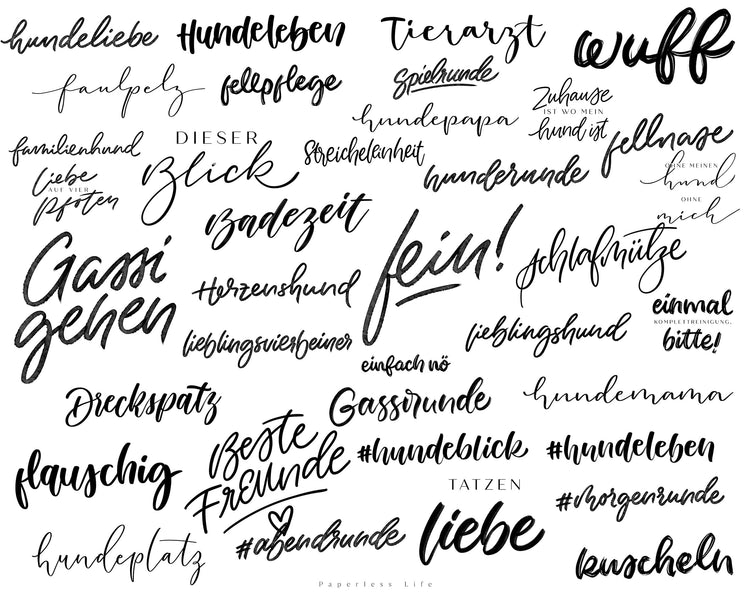 hundeliebe
Hundeleben
Tierarzt
wuff
faulpelz
fellpflege
Spielrunde
hundepapa
Zuhause
IST WO MEIN
hund ist
familienhund
DIESER
Blick
Streicheleinheit
hunderunde
fellnase
Liebe
AUF VIER
Pfoten
OHNE MEINEN
hund
OHNE
mich
Badezeit
Gassi
gehen
fein!
schlafmütze
Herzenshund
einmal
KOMPLETTREINIGUNG,
bitte!
lieblingsvierbeiner
lieblingshund
einfach nö
Dreckspatz
Gassirunde
hundemama
Beste
Freunde
#hundeblick
#hundeleben
flauschig
TATZEN
liebe
#morgenrunde
#abendrunde
hundeplatz
kuscheln
Paperless Life